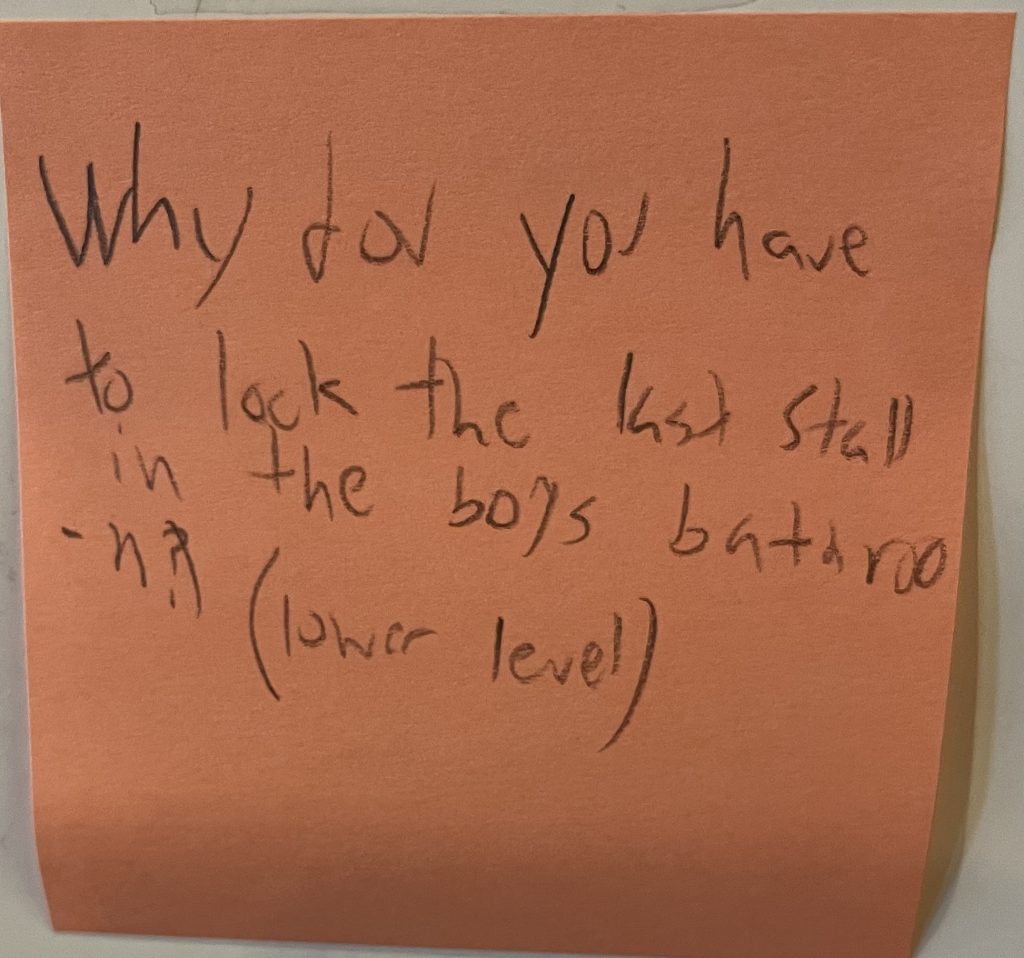 Why dou you have
to lock the last stall
in the boys bathroo
-m?
(lower level)